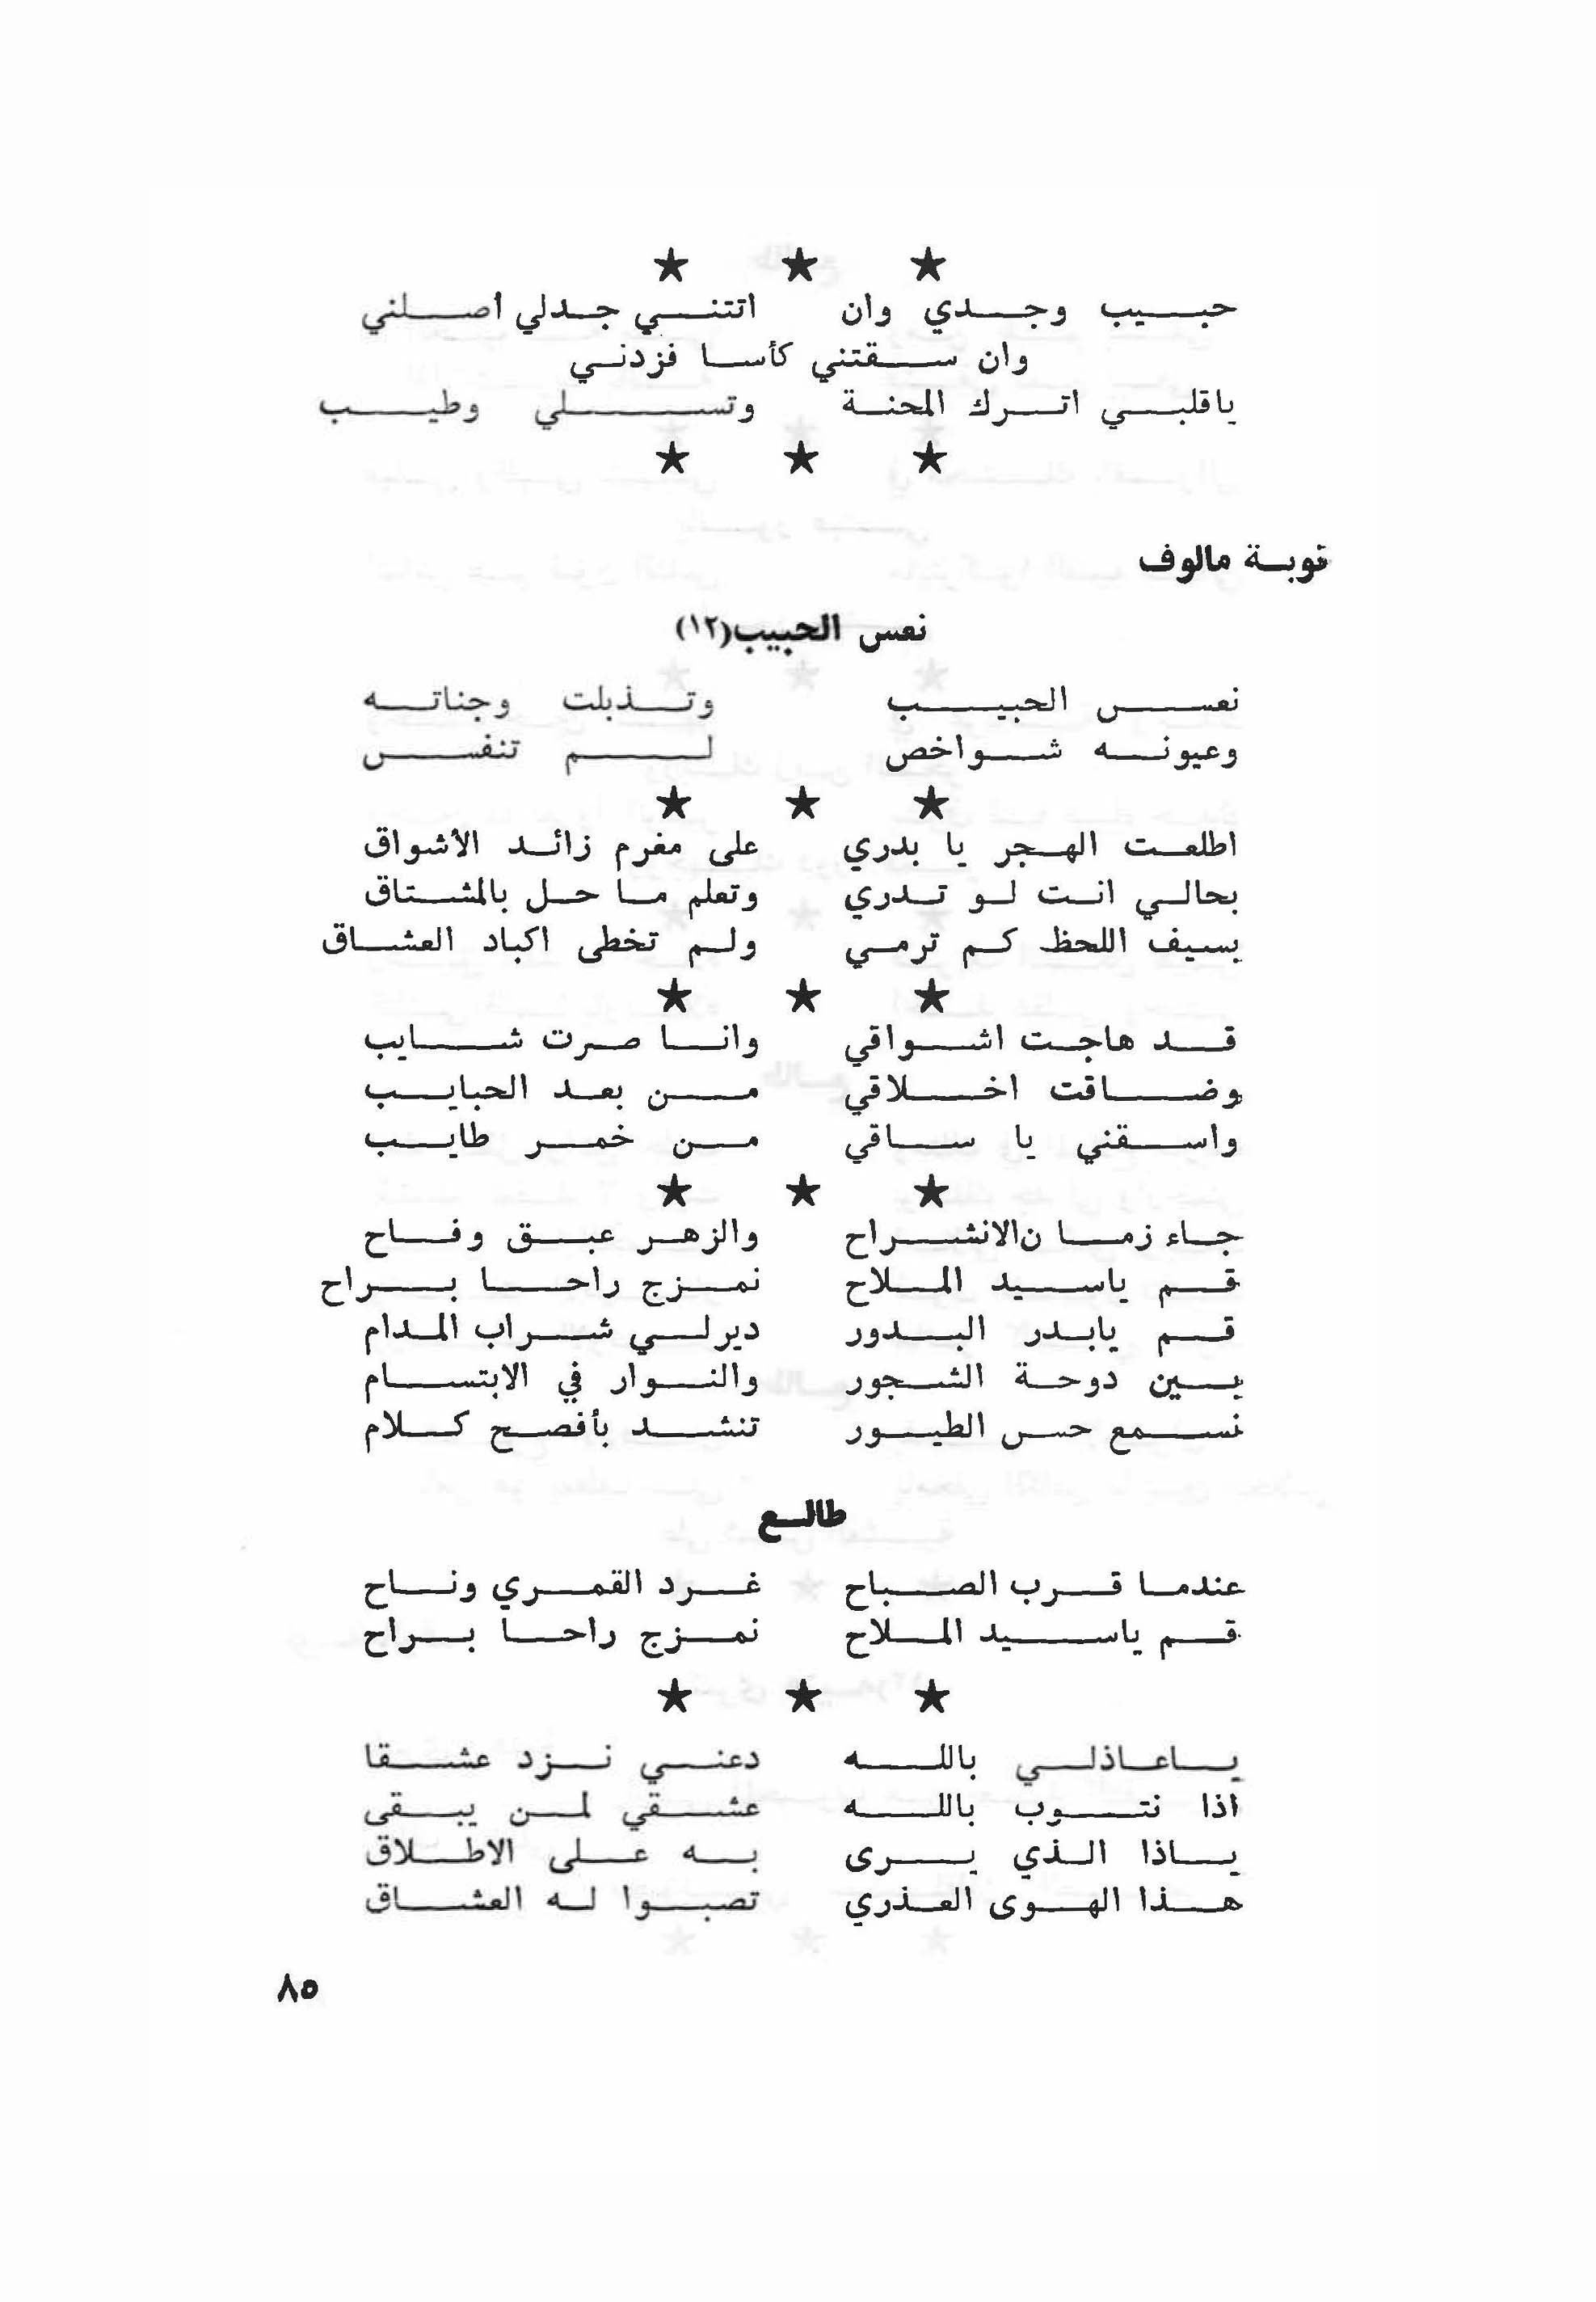 ★ ★ ★
حبيب وجدي وان اتتني جدلي أصلني
وان سقتني كأسا فزدني
ياقلبي اترك المحنة وتسلي وطيب
★ ★ ★
نوبة مالوف
نعس الحبيب(١٢)
نعس الحبيب وتذبلت وجناته
وعيونه شواخص لم تنفس
★ ★ ★
اطلعت الهجر يا بدري على مغرم زائد الأشواق
بحالي انت لو تدري وتعلم ما حل بالمشتاق
بسيف اللحظ كم ترمي ولم تخطى اكباد العشاق
★ ★ ★
قد هاجت اشواقي وانا صرت شايب
وضاقت اخلاقي من بعد الحبايب
واسقني يا ساقي من خمر طايب
★ ★ ★
جاء زما نالانشراح والزهر عبق وفاح
قم ياسيد الملاح نمزج راحا براح
قم يابدر البدور ديرلي شراب المدام
بين دوحة الشجور والنوار في الابتسام
نسمع حس الطيور تنشد بأفصح كلام
طالع
عندما قرب الصباح غرد القمري وناح
قم ياسيد الملاح نمزج راحا براح
★ ★ ★
ياعاذلي بالله دعني نزد عشقا
اذا نتوب بالله عشقي لمن يبقى
ياذا الذي يرى به على الاطلاق
هذا الهوى العذري تصبوا له العشاق
٨٥